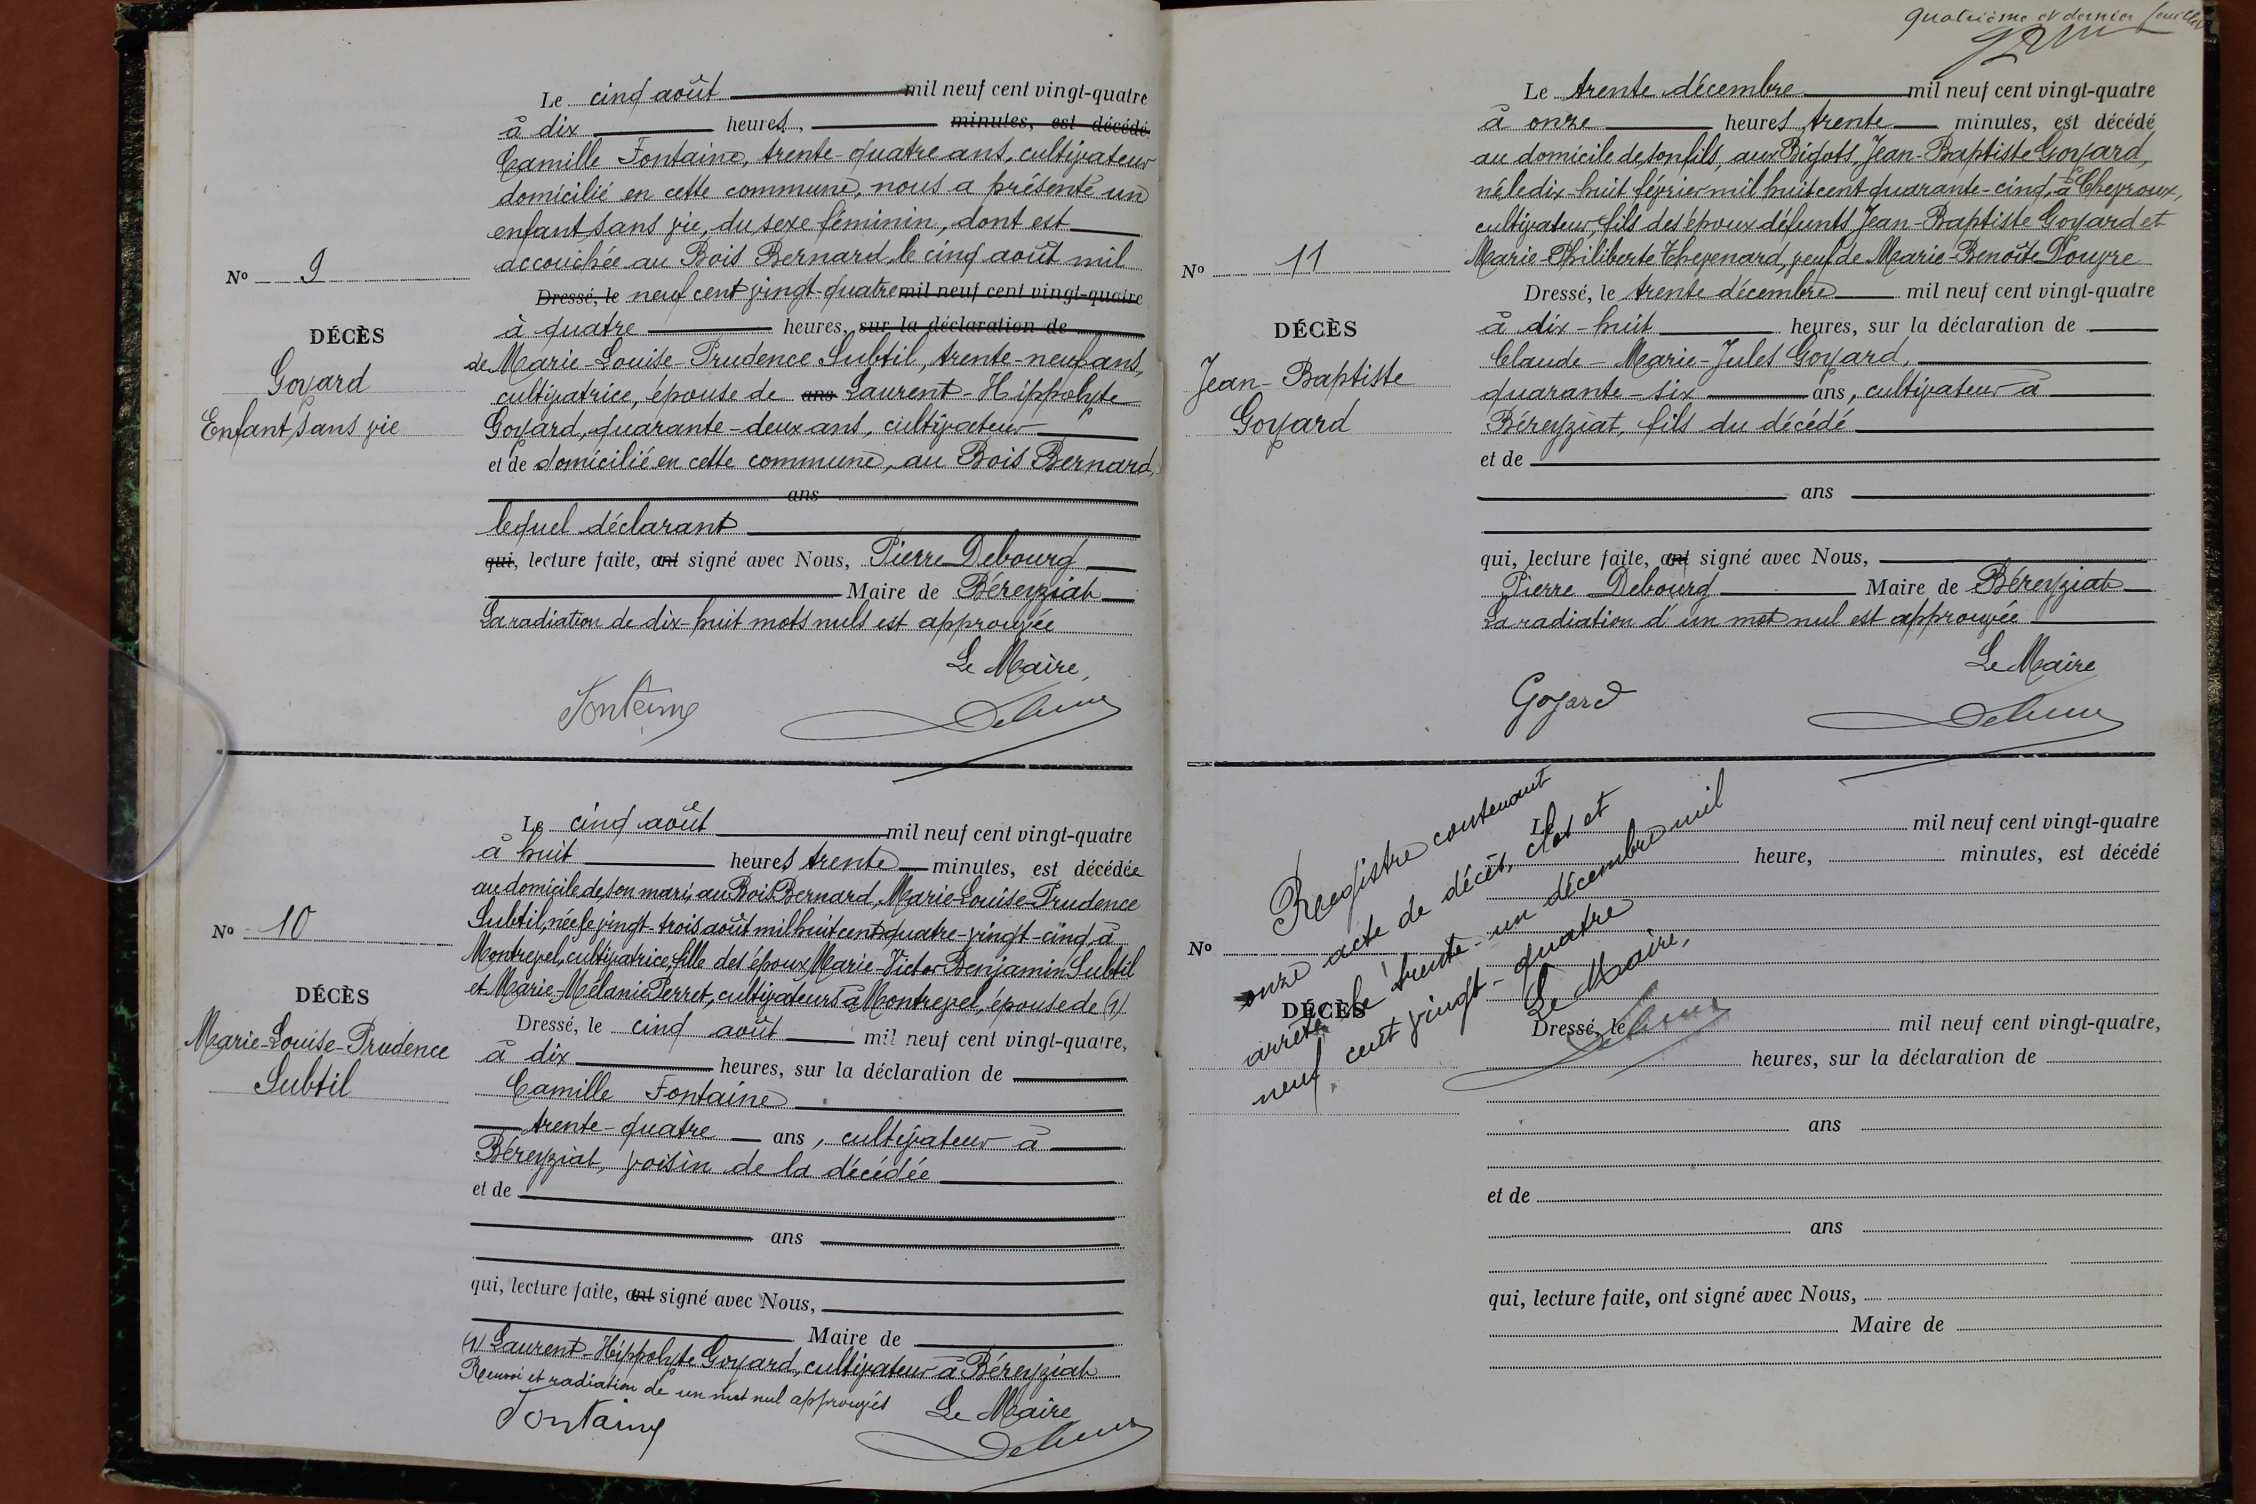 Le cinq août mil neuf cent vingt-quatre
à dix heures, minutes, est décédé
Camille Fontaine, trente-quatre ans, cultivateur
domicilié en cette commune, nous a présenté un
enfant sans vie, du sexe féminin, dont est
accouchée au Bois Bernard, le cinq août mil
Nº 9
Dressé, le neuf cent vingt-quatre mil neuf cent vingt-quatre
à quatre heures, sur la déclaration de
DÉCÈS
Goyard
Enfant sans vie
de Marie-Louise-Prudence Subtil, trente-neuf ans,
cultivatrice, épouse de ans Laurent-Hippolyte
Goyard, quarante-deux ans, cultivateur
et de domicilié en cette commune, au Bois Bernard,
ans
lequel déclarant
qui, lecture faite, ont signé avec Nous, Pierre Debourg
Maire de Béreyziat
La radiation de dix-huit mots nuls est approuvée
Le Maire,
Fontaine
Le cinq août mil neuf cent vingt-quatre
à huit heures trente minutes, est décédée
au domicile de son mari, au Bois Bernard, Marie-Louise-Prudence
Subtil, née le vingt-trois août mil huit cent quatre-vingt-cinq, à
Nº 10
Montrevel, cultivatrice, fille des époux Marie-Victor Benjamin Subtil
et Marie-Mélanie Perret, cultivateurs à Montrevel, épouse de (1)
DÉCÈS
Marie-Louise-Prudence
Subtil
Dressé, le cinq août mil neuf cent vingt-quatre,
à dix heures, sur la déclaration de
Camille Fontaine
trente-quatre ans, cultivateur à
Béreyziat, voisin de la décédée
et de
ans
qui, lecture faite, ont signé avec Nous,
Maire de
(1) Laurent-Hippolyte Goyard, cultivateur à Béreyziat
Renvoi et radiation de un mot nul approuvés
Le Maire
Fontaine
quatrième et dernier feuillet
Le trente décembre mil neuf cent vingt-quatre
à onze heures trente minutes, est décédé
au domicile de son fils, aux Bigots, Jean-Baptiste Goyard,
né le dix-huit février mil huit cent quarante-cinq, à Chevroux,
cultivateur, fils des époux défunts Jean-Baptiste Goyard et
Marie-Philiberte Thevenard, veuf de Marie-Benoîte Douvre
Nº 11
Dressé, le trente décembre mil neuf cent vingt-quatre
à dix-huit heures, sur la déclaration de
DÉCÈS
Jean-Baptiste
Goyard
Claude-Marie-Jules Goyard,
quarante-six ans, cultivateur à
Béreyziat, fils du décédé
et de
ans
qui, lecture faite, ont signé avec Nous,
Pierre Debourg Maire de Béreyziat
La radiation d'un mot nul est approuvée
Le Maire
Goyard
Registre contenant
onze acte de décès, clos et
arrêté le trente-un décembre mil
neuf cent vingt-quatre
Le Maire,
Le mil neuf cent vingt-quatre
heure, minutes, est décédé
Nº
DÉCÈS
Dressé, le mil neuf cent vingt-quatre,
heures, sur la déclaration de
ans
et de
ans
qui, lecture faite, ont signé avec Nous,
Maire de